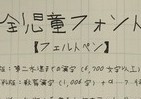 全児童フォント
【フェルトペン】
第二水準までの漢字(6,700文字以上)
教育漢字(1,006字)+ひら